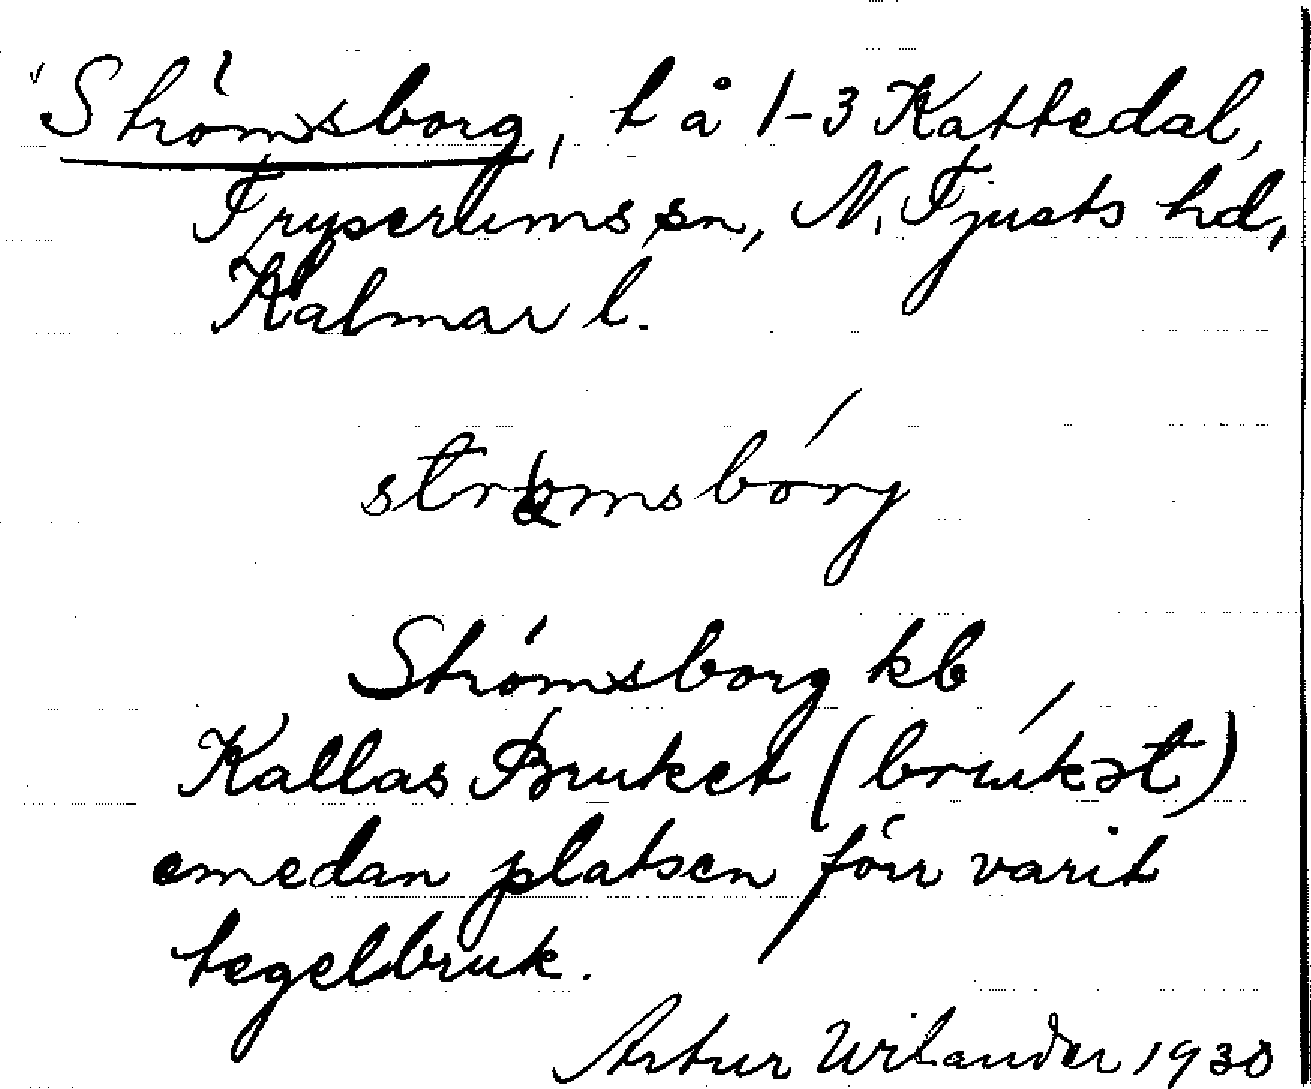 Strömsborg, t å 1-3 Kattedal,
Tryserums sn, N. Tjusts hd,
Kalmar l.
strömsbórj
Strömsborg kb
Kallas Bruket (brúkət)
emedan platsen förr varit
tegelbruk.
Artur Wilander 1930